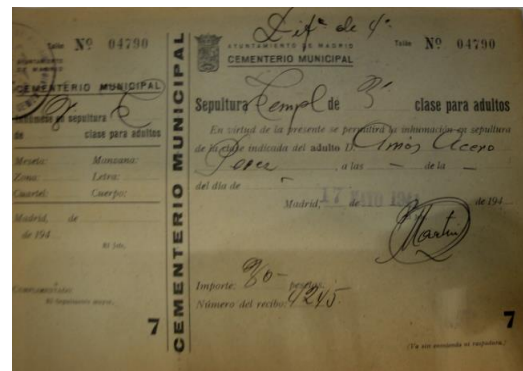 Talón Nº 04790
AYUNTAMIENTO
DE MADRID
CEMENTERIO MUNICIPAL
sepultura
de clase para adultos
Meseta: Manzana:
Zona: Letra:
Cuartel: Cuerpo:
Madrid, de
de 194
El Jefe,
7
CEMENTERIO MUNICIPAL
de 4ª
AYUNTAMIENTO DE MADRID
CEMENTERIO MUNICIPAL
Talón Nº 04790
Sepultura Templ de 3ª clase para adultos
En virtud de la presente se permitirá la inhumación en sepultura
de la clase indicada del adulto D. Amós Acero
Perez, a las — de la —
del día de
Madrid, 17 de de 194
Martin
Importe: 30- pesetas.
Número del recibo: 4245.
7